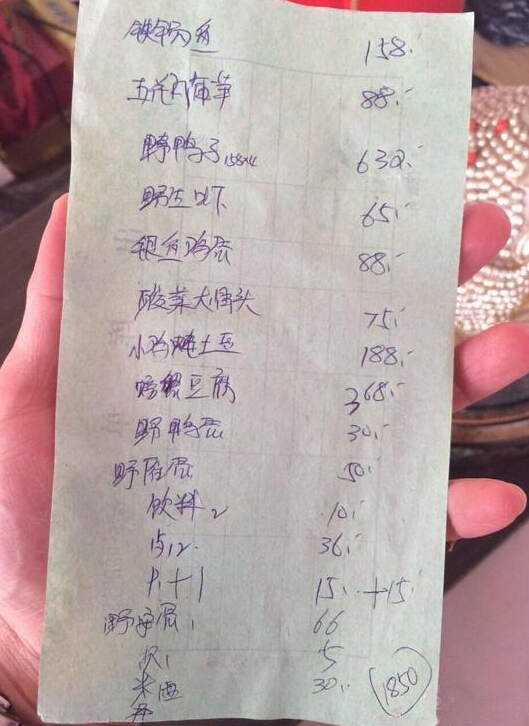 铁锅鱼 158.-
五花肉 88.-
野鸭子 158x4 632.-
野生 65.-
银鱼鸡蛋 88.-
酸菜大骨头 75.-
小鸡炖土豆 188.-
螃蟹豆腐 368.-
野鸭蛋 30.-
野雁蛋 50.-
饮料2 10.-
36.-
15.- +15.-
66
5
30.- 1850